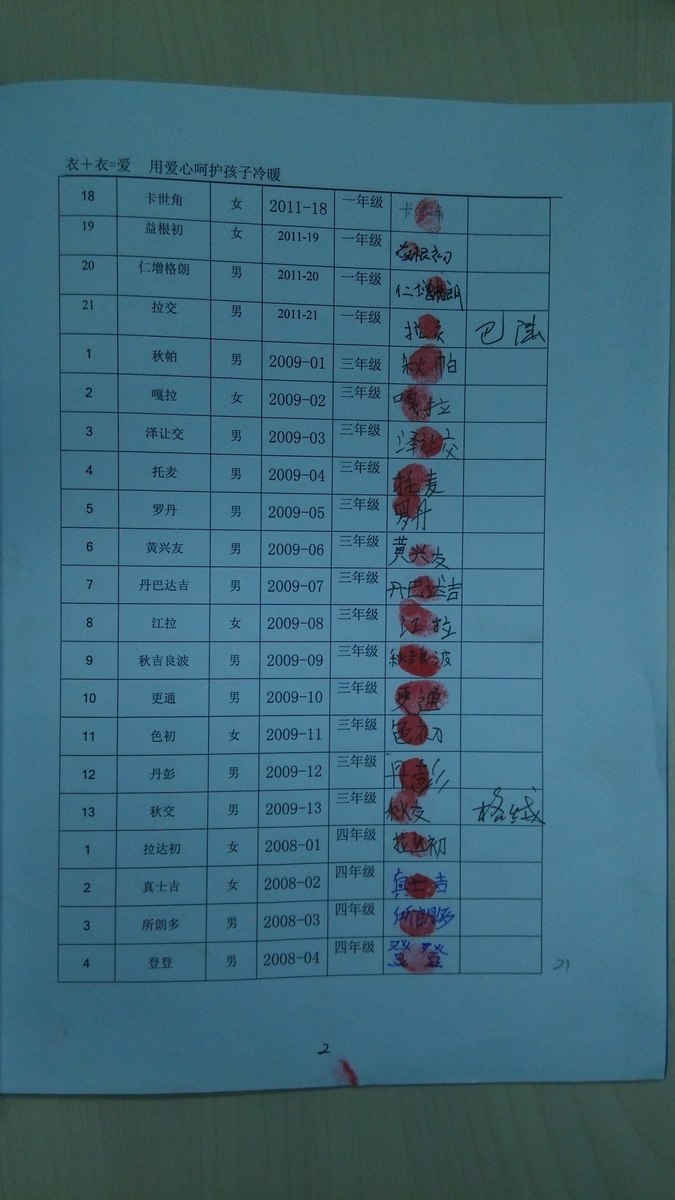 衣＋衣=爱 用爱心呵护孩子冷暖
18 卡世角 女 2011-18 一年级
19 益根初 女 2011-19 一年级 益根初
20 仁增格朗 男 2011-20 一年级 仁增格朗
21 拉交 男 2011-21 一年级 拉交
1 秋帕 男 2009-01 三年级 秋帕
2 嘎拉 女 2009-02 三年级 嘎拉
3 泽让交 男 2009-03 三年级 泽让交
4 托麦 男 2009-04 三年级 托麦
5 罗丹 男 2009-05 三年级 罗丹
6 黄兴友 男 2009-06 三年级 黄兴友
7 丹巴达吉 男 2009-07 三年级 丹巴达吉
8 江拉 女 2009-08 三年级 江拉
9 秋吉良波 男 2009-09 三年级 秋吉良波
10 更通 男 2009-10 三年级 更通
11 色初 女 2009-11 三年级 色初
12 丹彭 男 2009-12 三年级 丹彭
13 秋交 男 2009-13 三年级 秋交 格绒
1 拉达初 女 2008-01 四年级 拉达初
2 真士吉 女 2008-02 四年级 真士吉
3 所朗多 男 2008-03 四年级 所朗多
4 登登 男 2008-04 四年级 登登
21
2